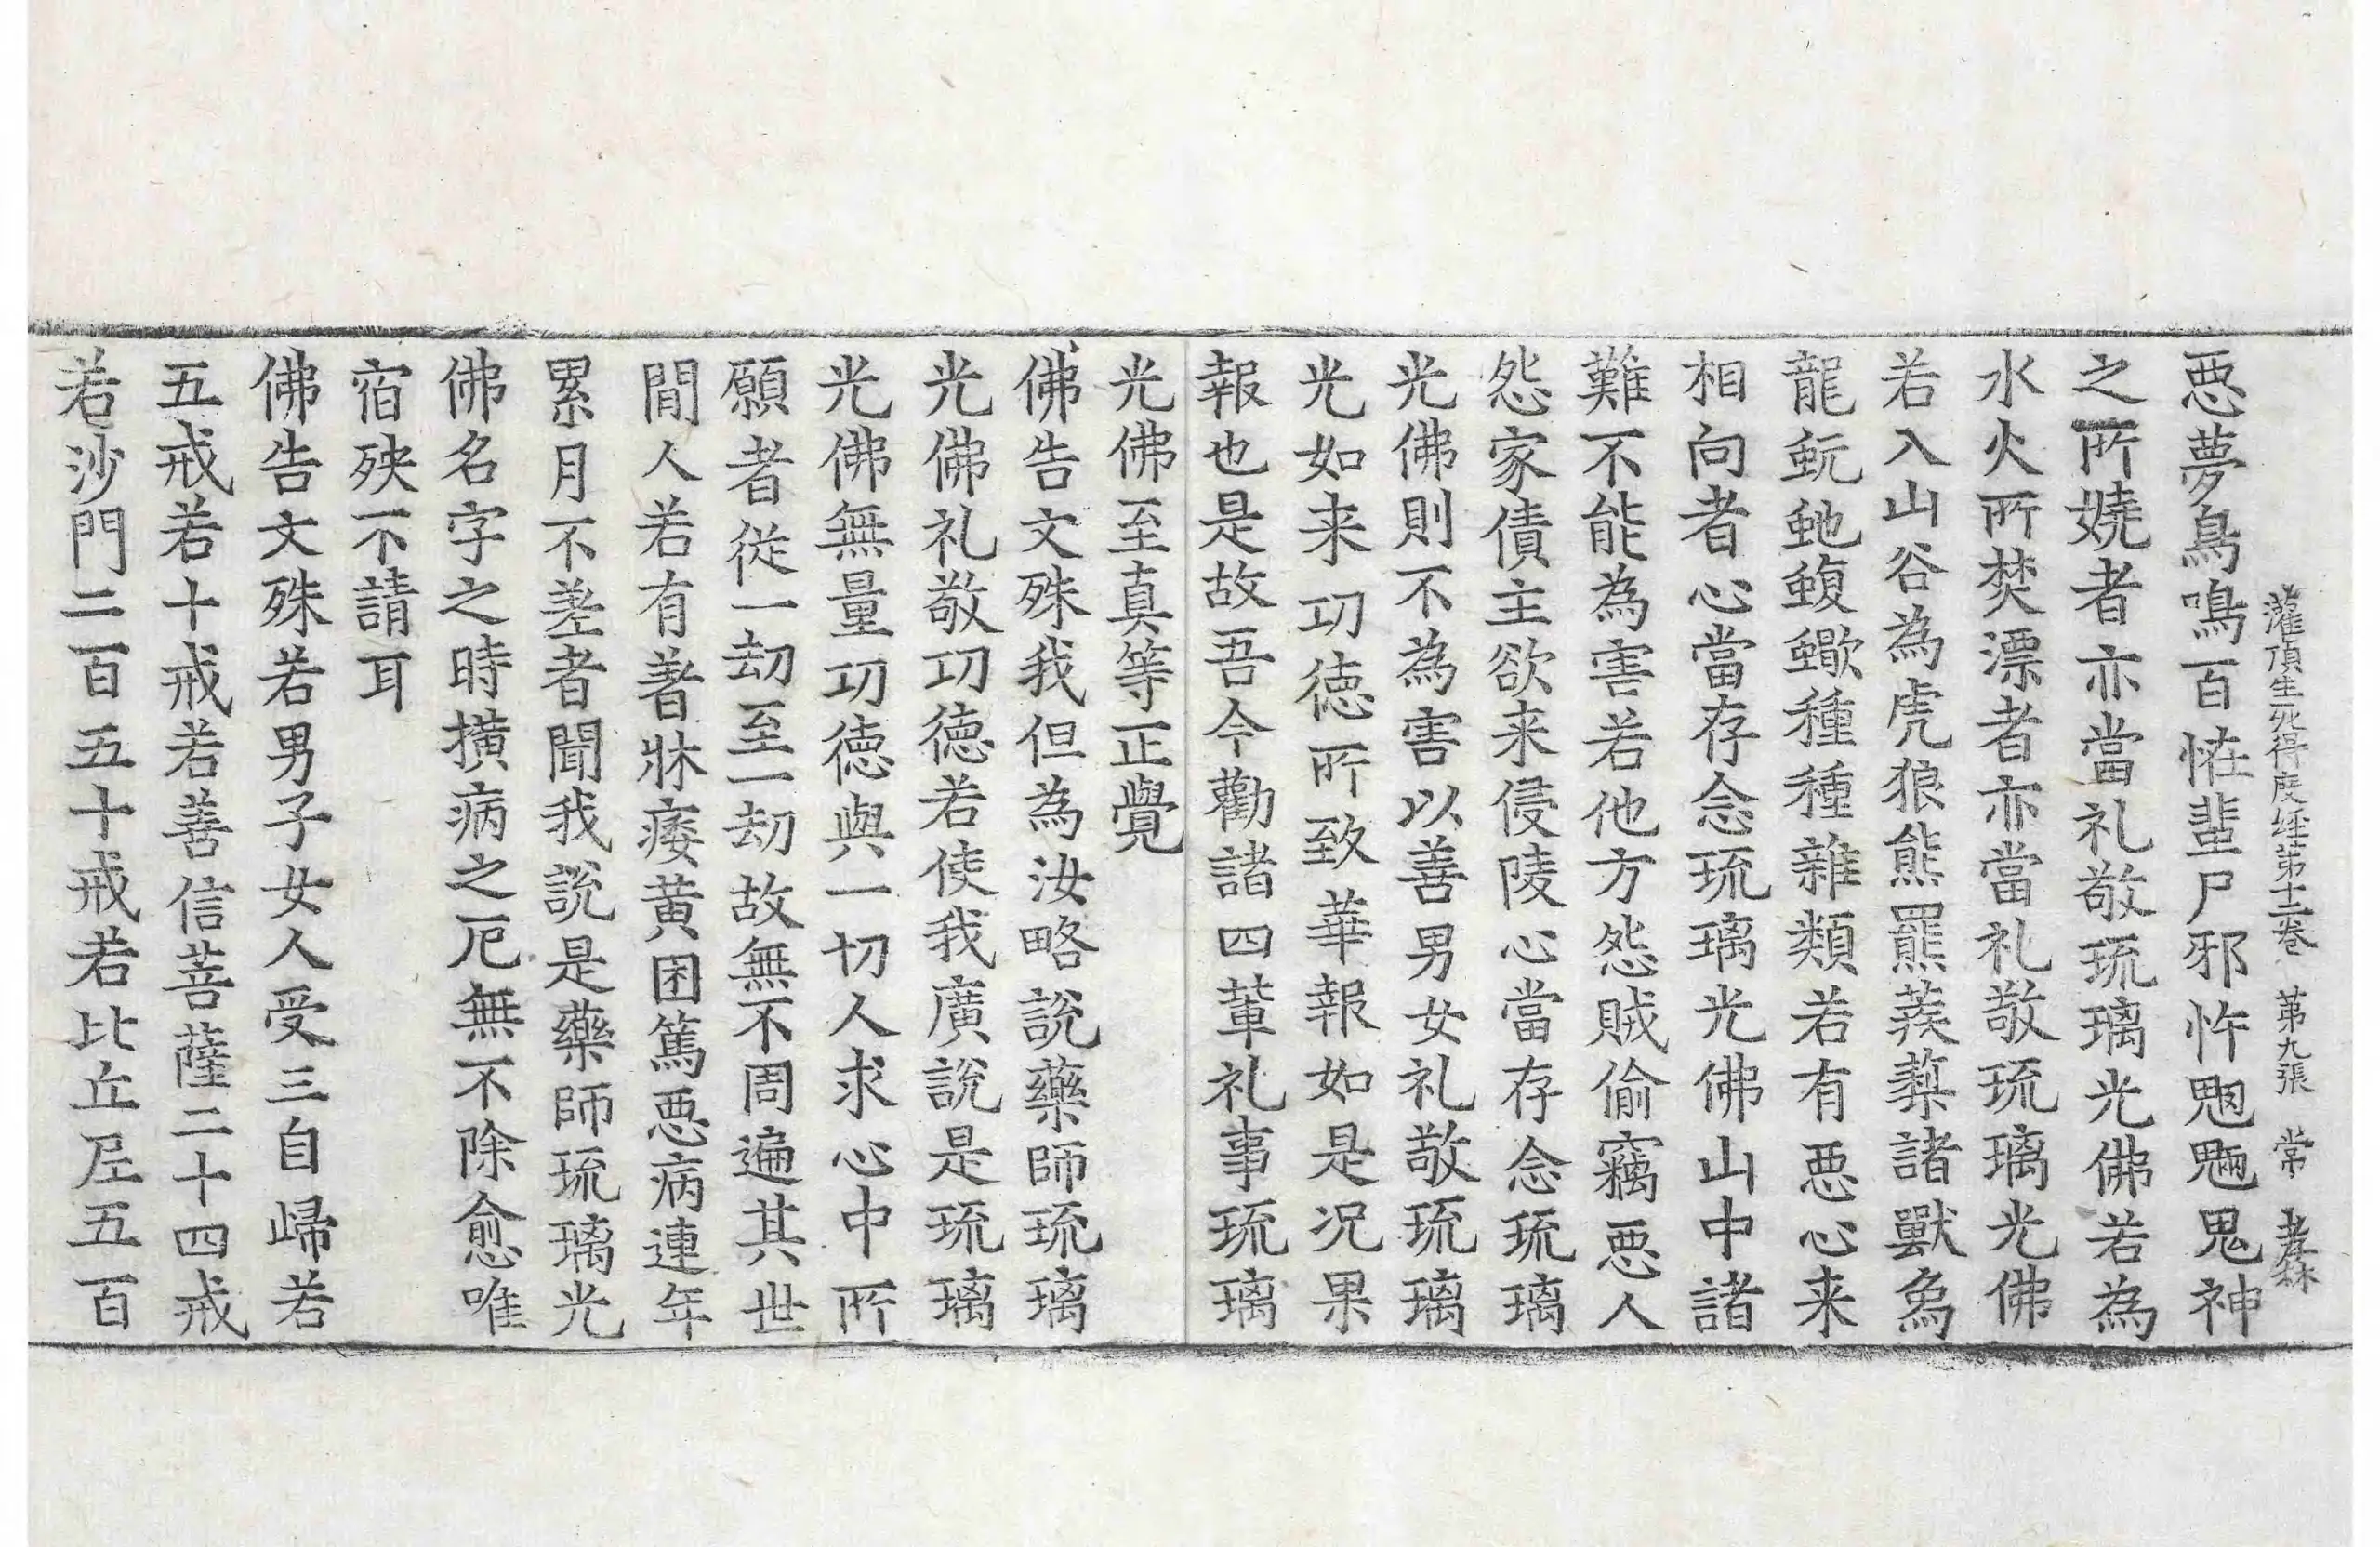 灌頂生死得度経第十二卷 第九張 常 孝林
惡夢鳥鳴百恠蜚尸邪忤魍魎鬼神
之所嬈者亦當礼敬琉璃光佛若為
水火所焚漂者亦當礼敬琉璃光佛
若入山谷為虎狼熊羆蒺䔧諸獸象
龍蚖虵蝮蠍種種雜類若有惡心来
相向者心當存念琉璃光佛山中諸
難不能為害若他方怨賊偷竊惡人
怨家債主欲来侵陵心當存念琉璃
光佛則不為害以善男女礼敬琉璃
光如来功德所致華報如是况果
報也是故吾今勸諸四軰礼事琉璃
光佛至真等正覺
佛告文殊我但為汝略說藥師琉璃
光佛礼敬功德若使我廣說是琉璃
光佛無量功德與一切人求心中所
願者從一劫至一劫故無不周遍其世
間人若有著牀痿黃困篤惡病連年
累月不差者聞我說是藥師琉璃光
佛名字之時撗病之厄無不除愈唯
宿殃不請耳
佛告文殊若男子女人受三自歸若
五戒若十戒若善信菩薩二十四戒
若沙門二百五十戒若比丘尼五百